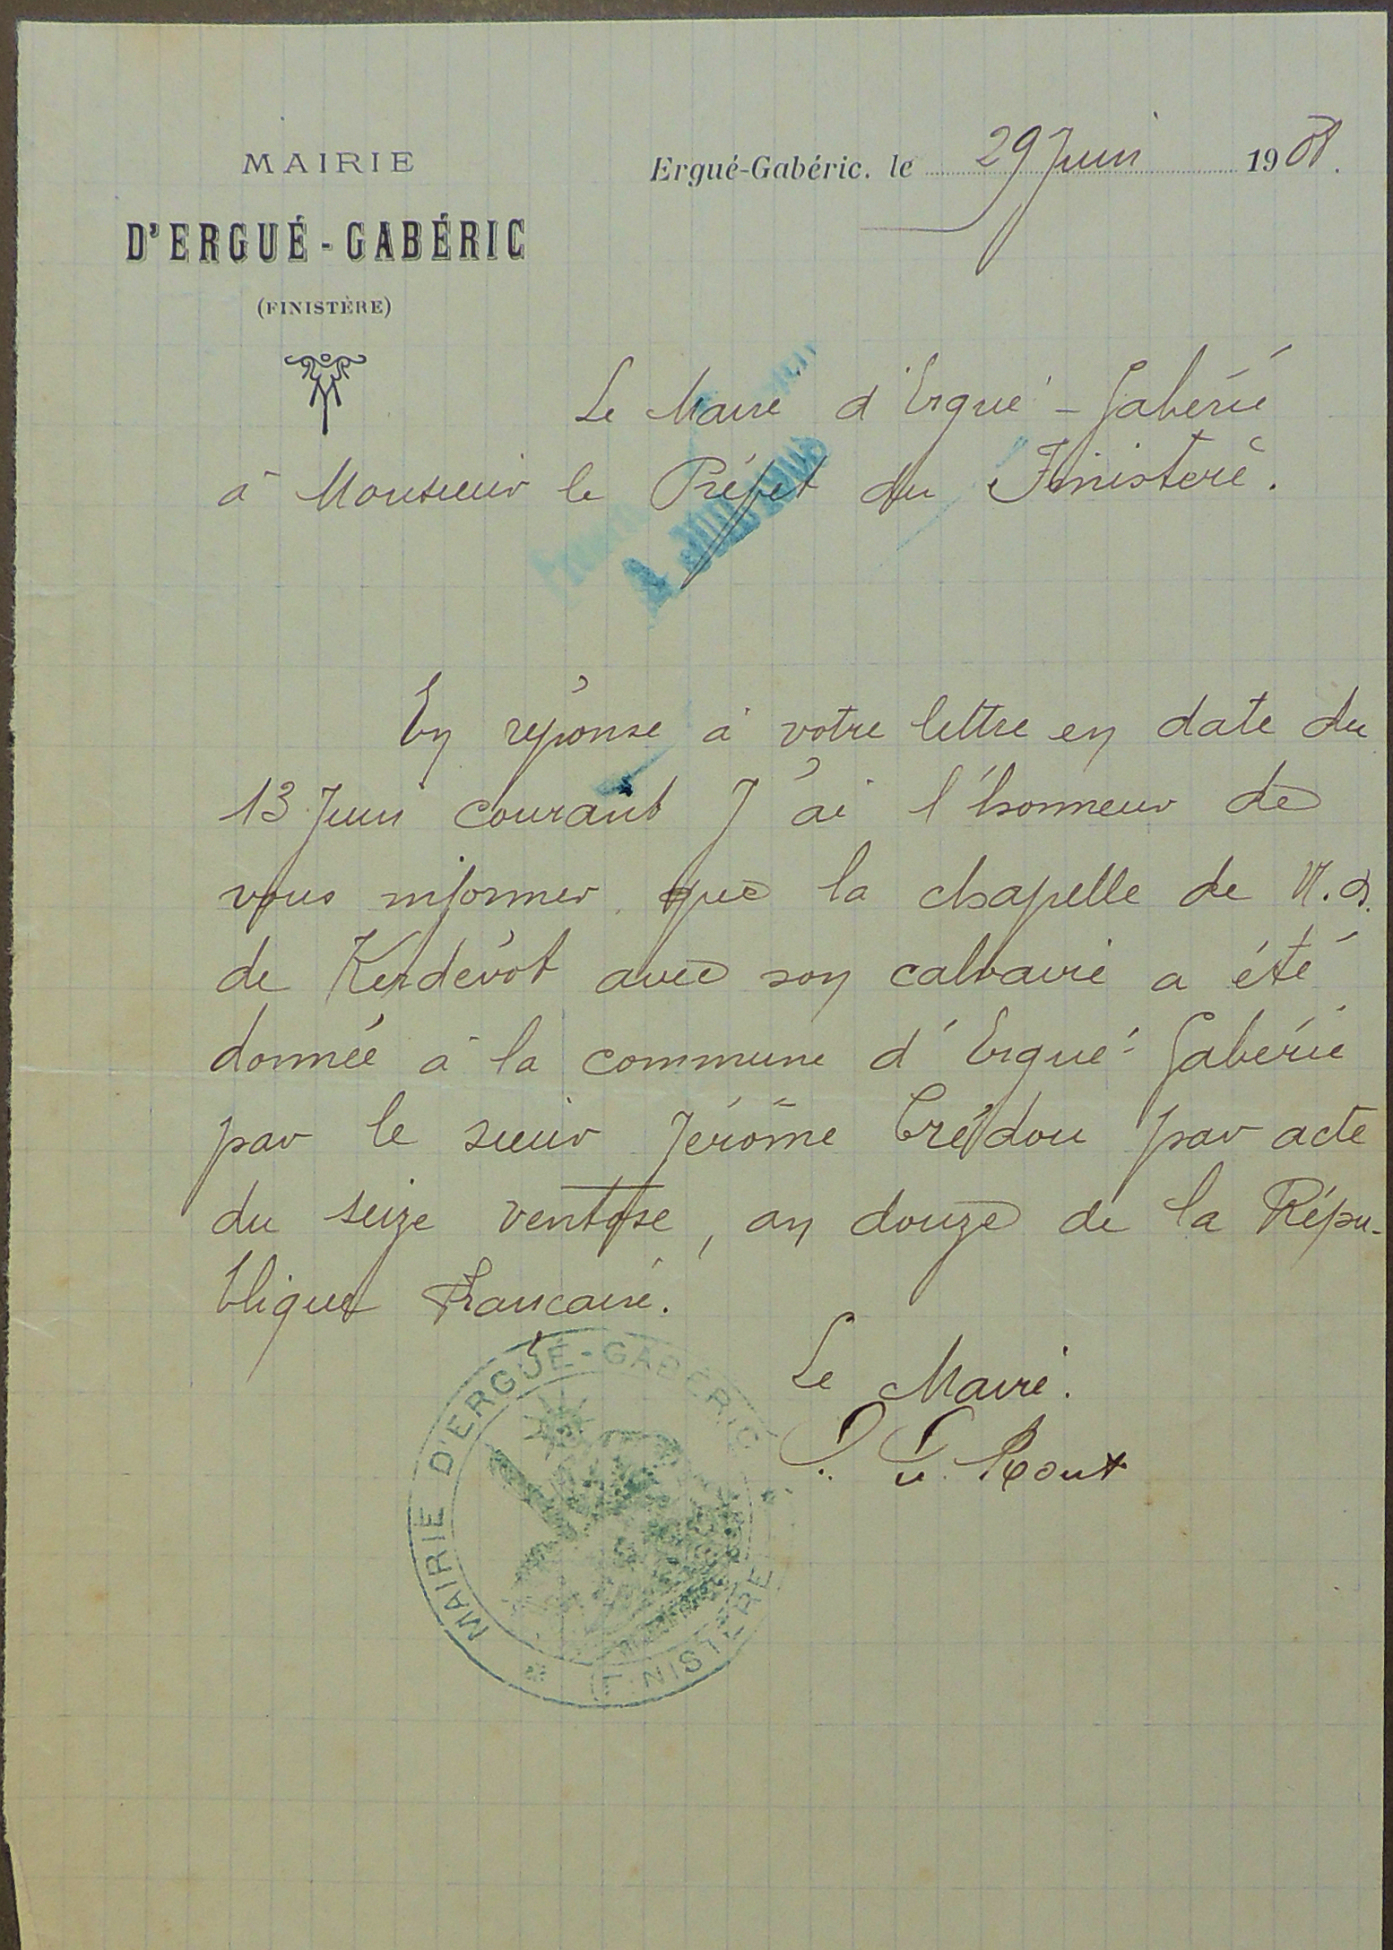 MAIRIE
D'ERGUÉ-GABÉRIC
(FINISTÈRE)
Ergué-Gabéric, le 29 Juin 19
Le Maire d'Ergué-Gabéric
à Monsieur le Préfet du Finistère.
En réponse à votre lettre en date du
13 Juin courant J'ai l'honneur de
vous informer que la chapelle de N. d.
de Kerdévot avec son calvaire a été
donnée à la commune d'Ergué-Gabéric
par le sieur Jérôme Crédou par acte
du seize ventose, an douze de la Répu-
blique Française.
Le Maire.
Le Roux
MAIRIE D'ERGUÉ-GABÉRIC
(FINISTÈRE)